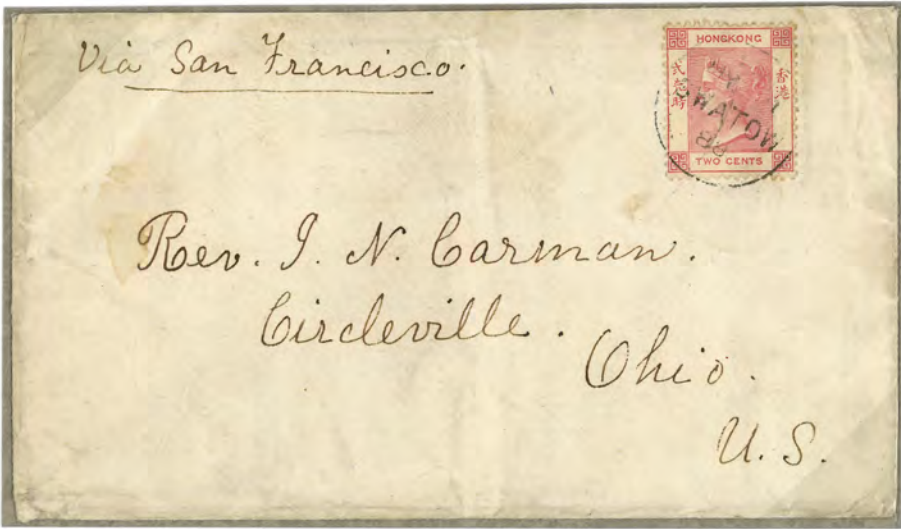 Via San Francisco.
HONGKONG
香港
弍先時
SWATOW
TWO CENTS
Rev. I. N. Carman.
Circleville.
Ohio.
U. S.